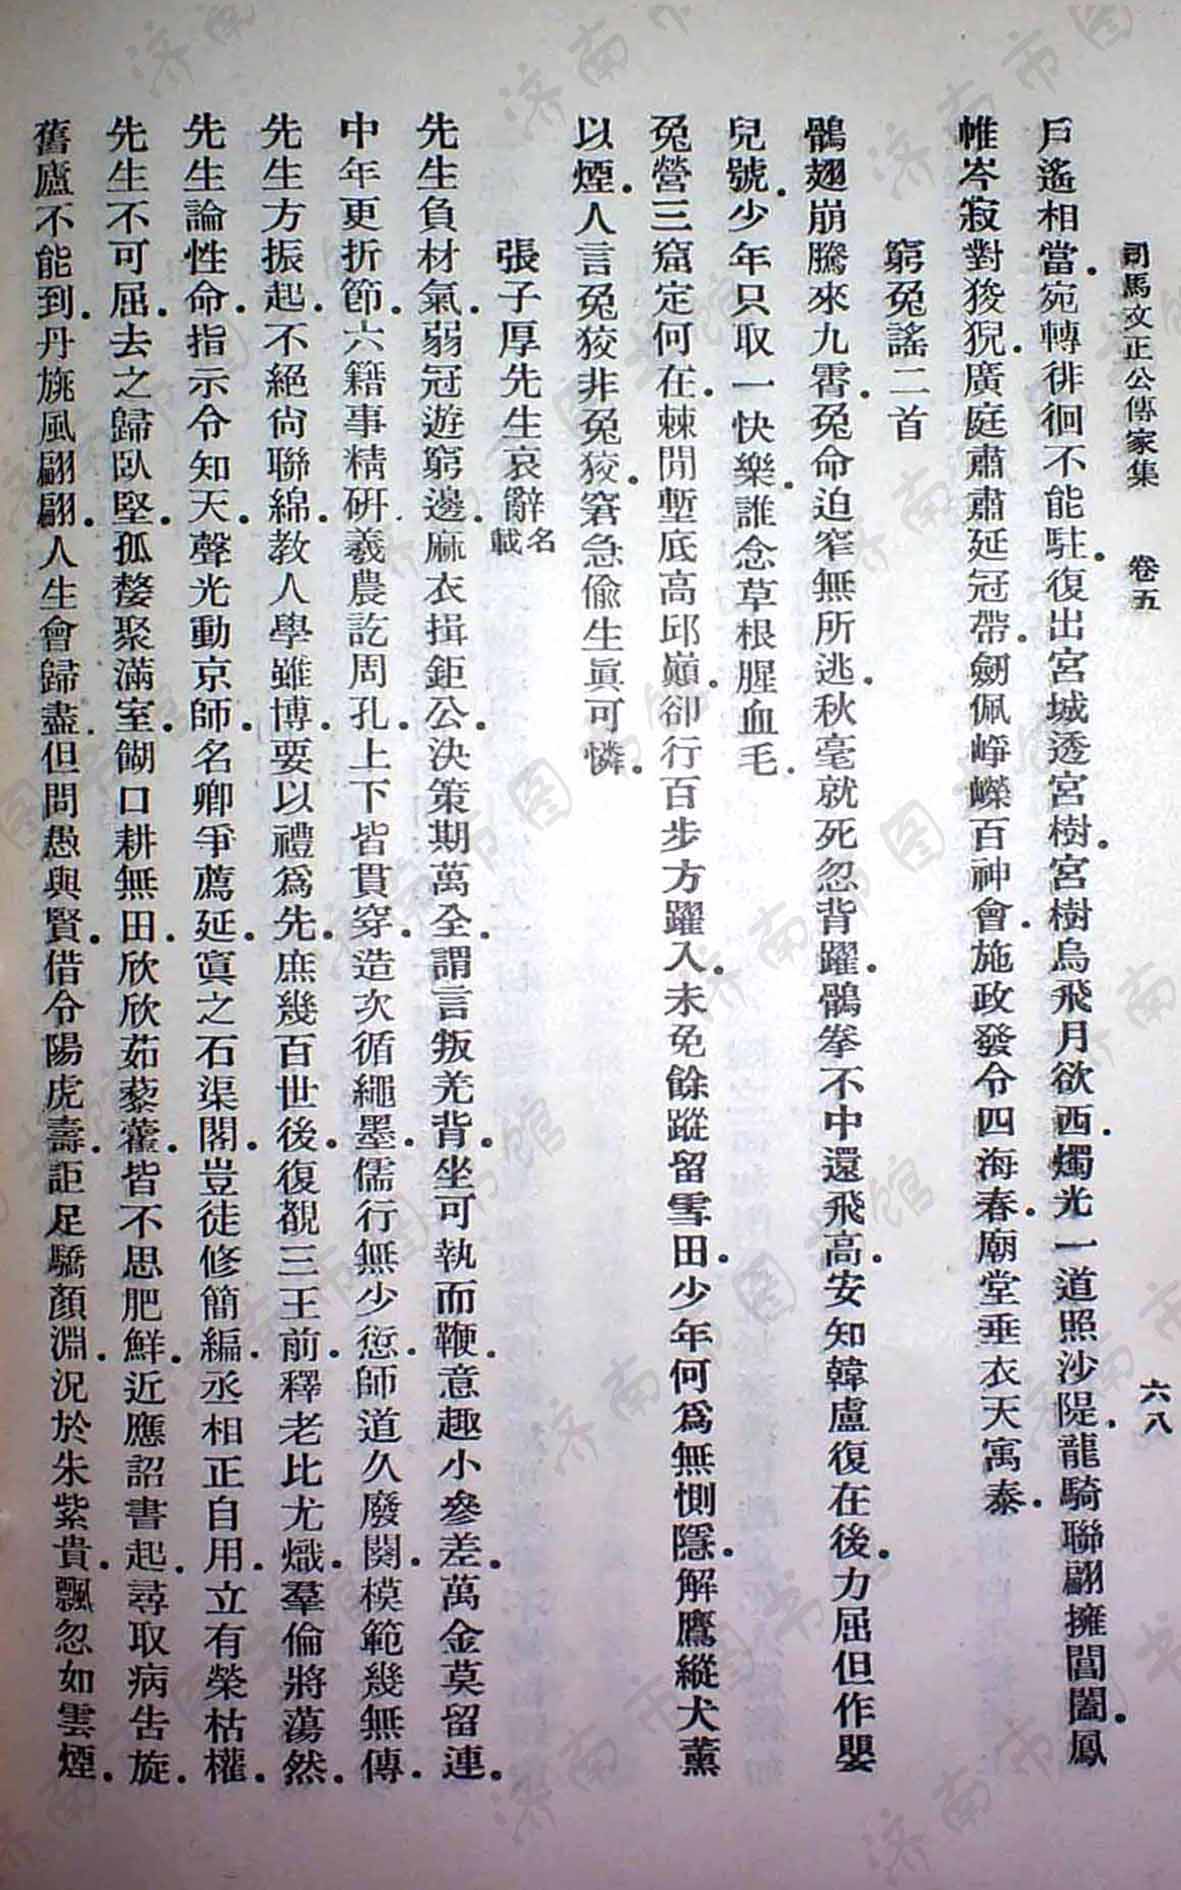 司馬文正公傳家集　卷五　六八
戶遙相當．宛轉徘徊不能駐．復出宮城透宮樹．宮樹烏飛月欲西．燭光一道照沙隄．龍騎聯翩擁閶闔．鳳
帷岑寂對狻猊．廣庭肅肅延冠帶．劒佩崢嶸百神會．施政發令四海春．廟堂垂衣天寓泰．
窮兔謠二首
鶻翅崩騰來九霄．兔命迫窄無所逃．秋毫就死忽背躍．鶻拳不中還飛高．安知韓盧復在後．力屈但作嬰
兒號．少年只取一快樂．誰念草根腥血毛．
兔營三窟定何在．棘閒塹底高邱巔．卻行百步方躍入．未免餘蹤留雪田．少年何爲無惻隱．解鷹縱犬薰
以煙．人言兔狡非兔狡．窘急偷生眞可憐．
張子厚先生哀辭名載
先生負材氣．弱冠遊窮邊．麻衣揖鉅公．決策期萬全．謂言叛羌背．坐可執而鞭．意趣小參差．萬金莫留連．
中年更折節．六籍事精硏．羲農訖周孔．上下皆貫穿．造次循繩墨．儒行無少愆．師道久廢闕．模範幾無傳．
先生方振起．不絕尙聯綿．教人學雖博．要以禮爲先．庶幾百世後．復覩三王前．釋老比尤熾．羣倫將蕩然．
先生論性命．指示令知天．聲光動京師．名卿爭薦延．寘之石渠閣．豈徒修簡編．丞相正自用．立有榮枯權．
先生不可屈．去之歸臥堅．孤嫠聚滿室．餬口耕無田．欣欣茹藜藿．皆不思肥鮮．近應詔書起．尋取病告旋．
舊廬不能到．丹旐風翩翩．人生會歸盡．但問愚與賢．借令陽虎壽．詎足驕顏淵．況於朱紫貴．飄忽如雲煙．